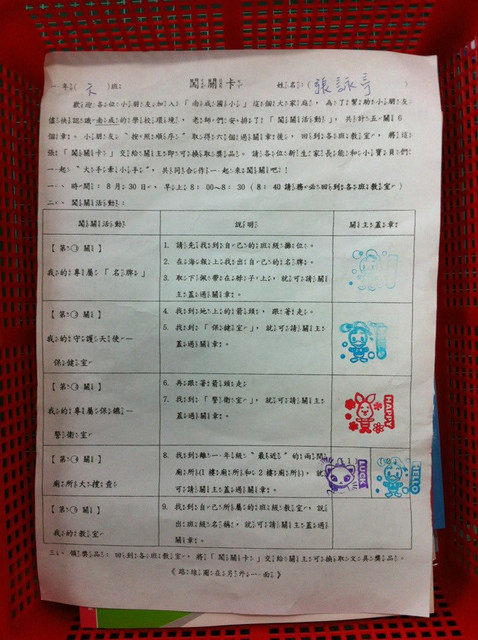 闖關卡
一年( 六 )班 姓名:( 張詠
歡迎各位小朋友加入「南成國小」這個大家庭,為了幫助小朋友
儘快認識南成的學校環境,老師們安排了「闖關活動」,共計五關6
個章。小朋友"按照順序"取得六個過關章後,回到各班教室,將這
張「闖關卡」交給關主即可換取獎品。請各位新生家長能和小寶貝們
一起"大手牽小手",共同合作一起來闖關吧!
一、時間:8月30日,早上8:00~8:30(8:40請務必回到各班教室)
二、闖關活動:
闖關活動 說明 關主蓋章
【第 關】
我的專屬「名牌」
1. 請先找到自己的班級攤位。
2. 在海報上找出自己的名牌。
3. 取下佩帶在脖子上,就可請關主
蓋過關章。
【第 關】
我的守護天使-
保健室
4. 找到地上的箭頭,跟著走。
5. 找到「保健室」,就可請關主
蓋過關章。
【第 關】
我的專屬保鑣-
警衛室
6. 再跟著箭頭走
7. 找到「警衛室」,就可請關主
蓋過關章。
HAPPY
【第 關】
廁所大搜查
8. 找到離一年級"最近"的兩間
廁所(1樓廁所和2樓廁所),就
可請關主蓋過關章。
LUCKY
HELLO
【第 關】
我的教室
9. 找到自己所屬的班級教室,說
出班級名稱,就可請關主蓋過
關章。
三、領獎品:回到各班教室,將「闖關卡」交給關主可換取文具獎品。
《路線圖在另外一面》